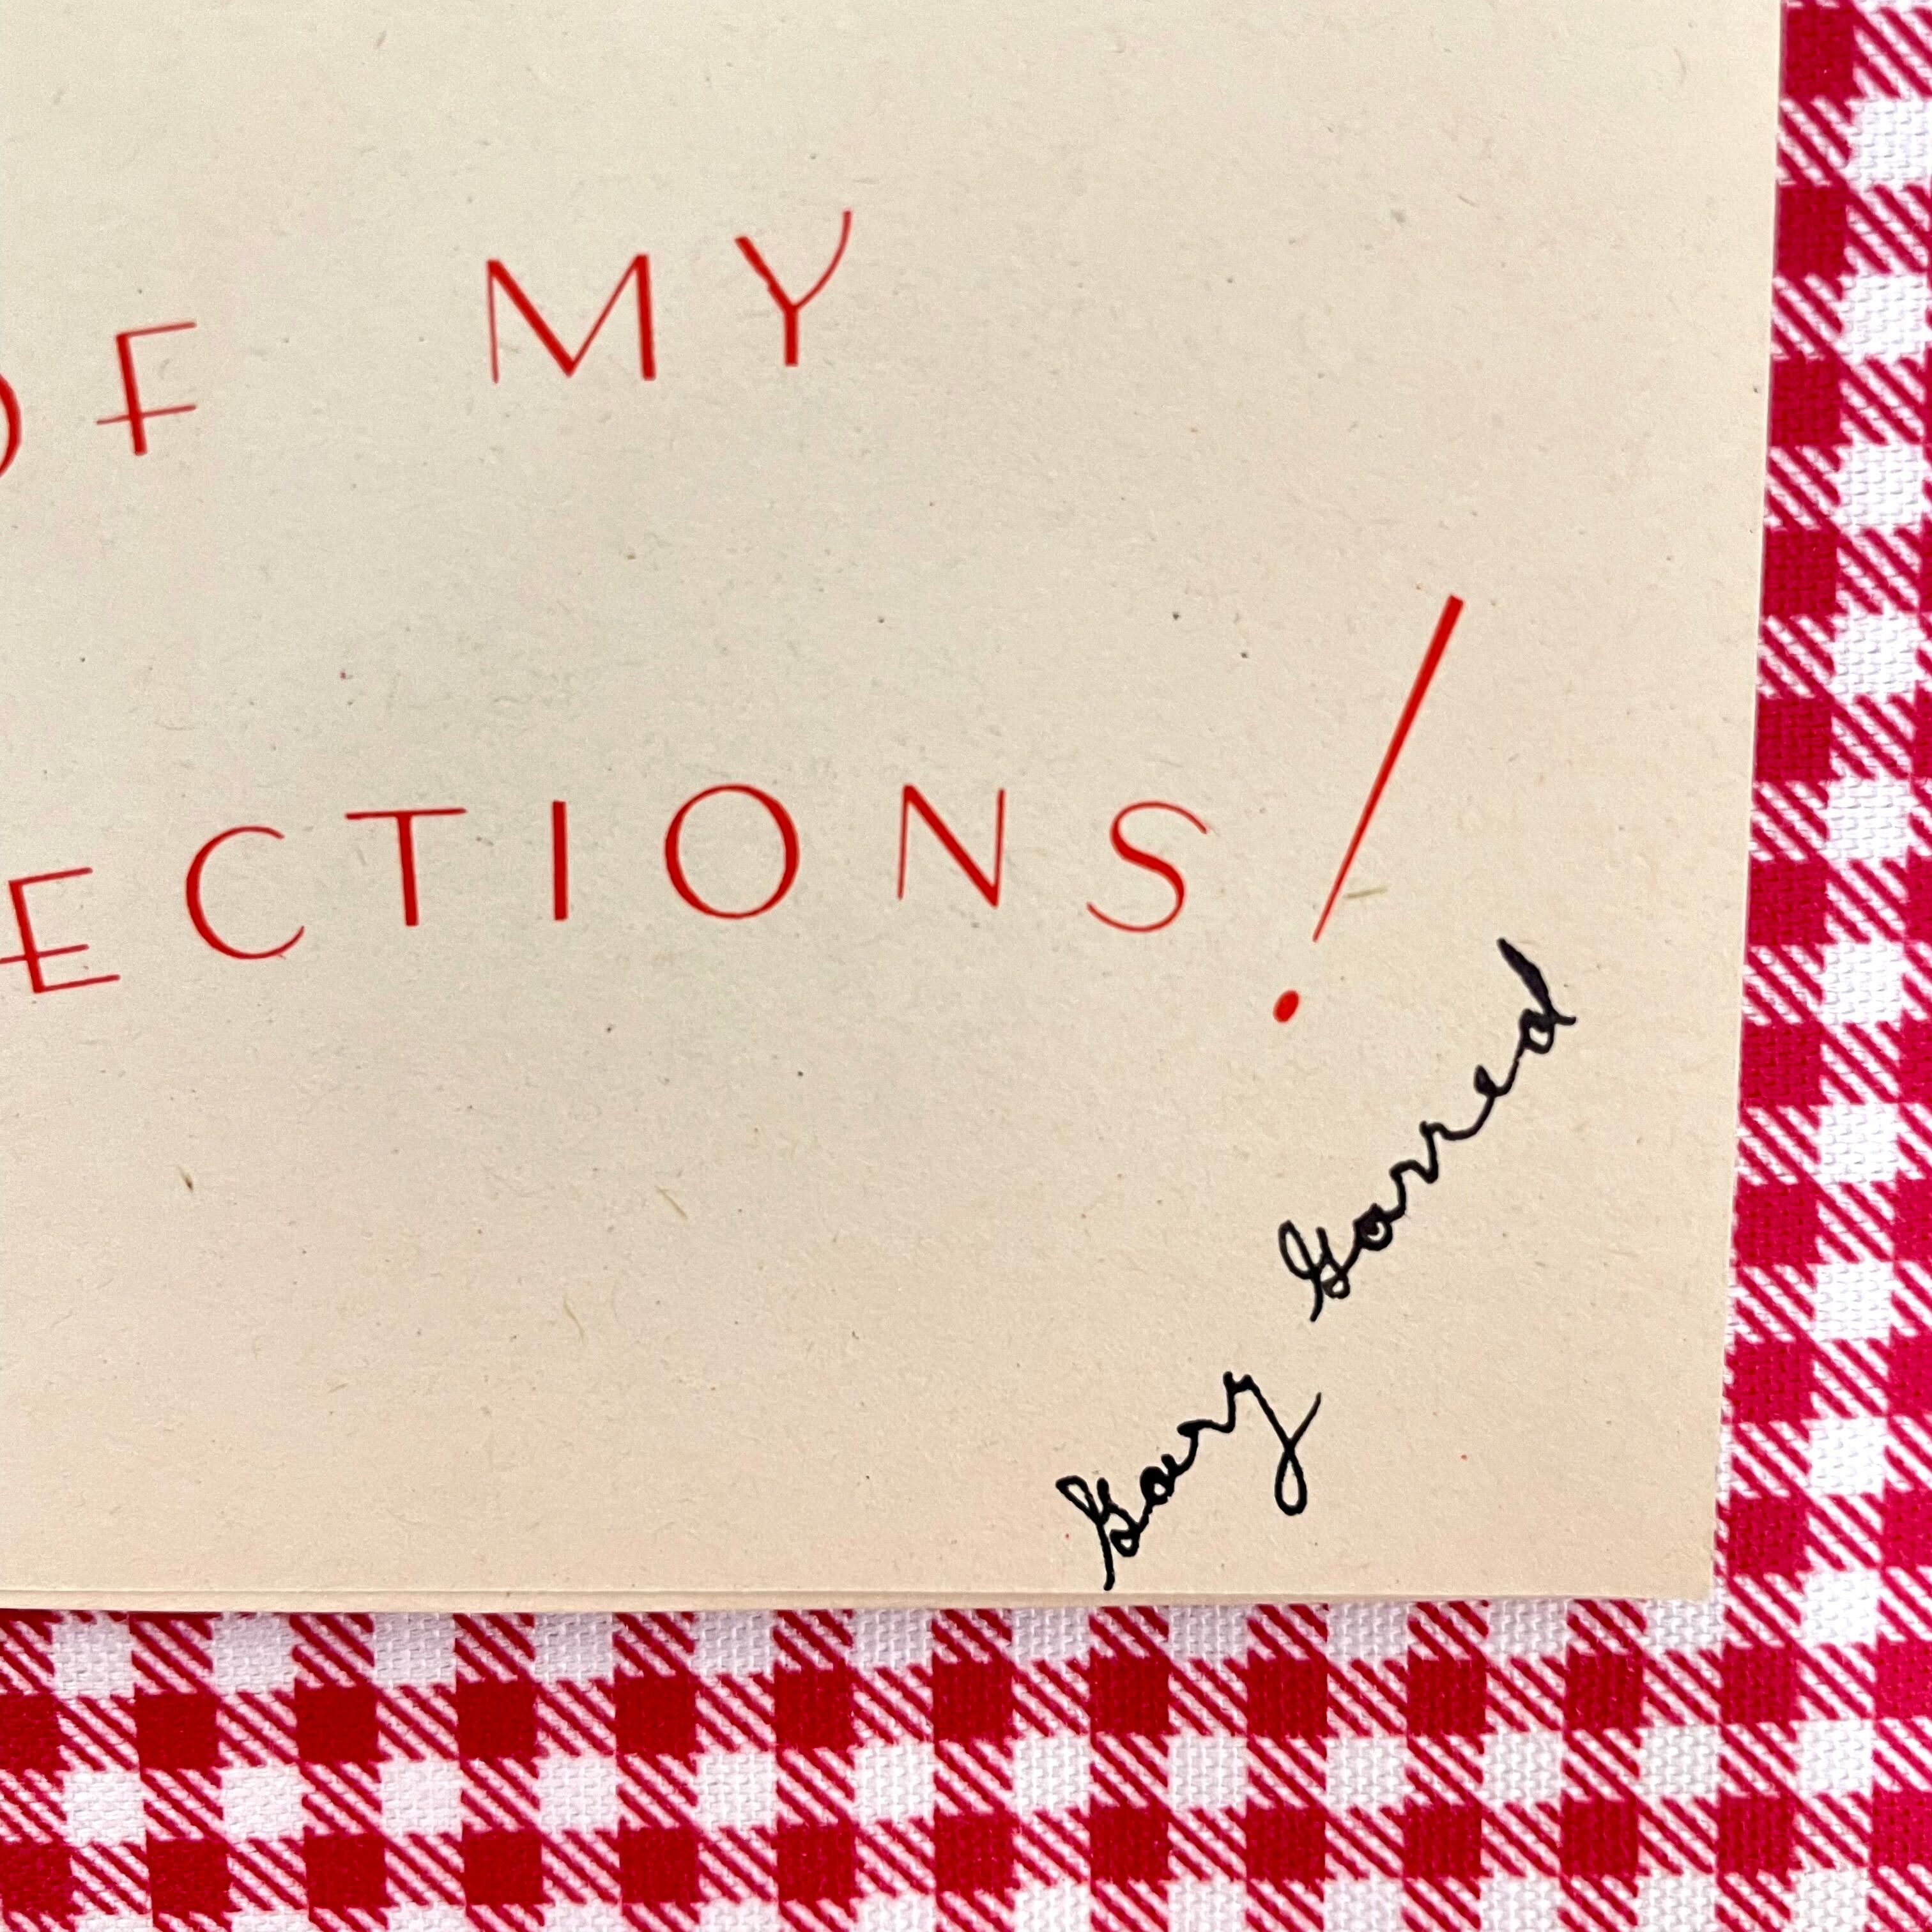 OF MY
ECTIONS!
Gary Garred